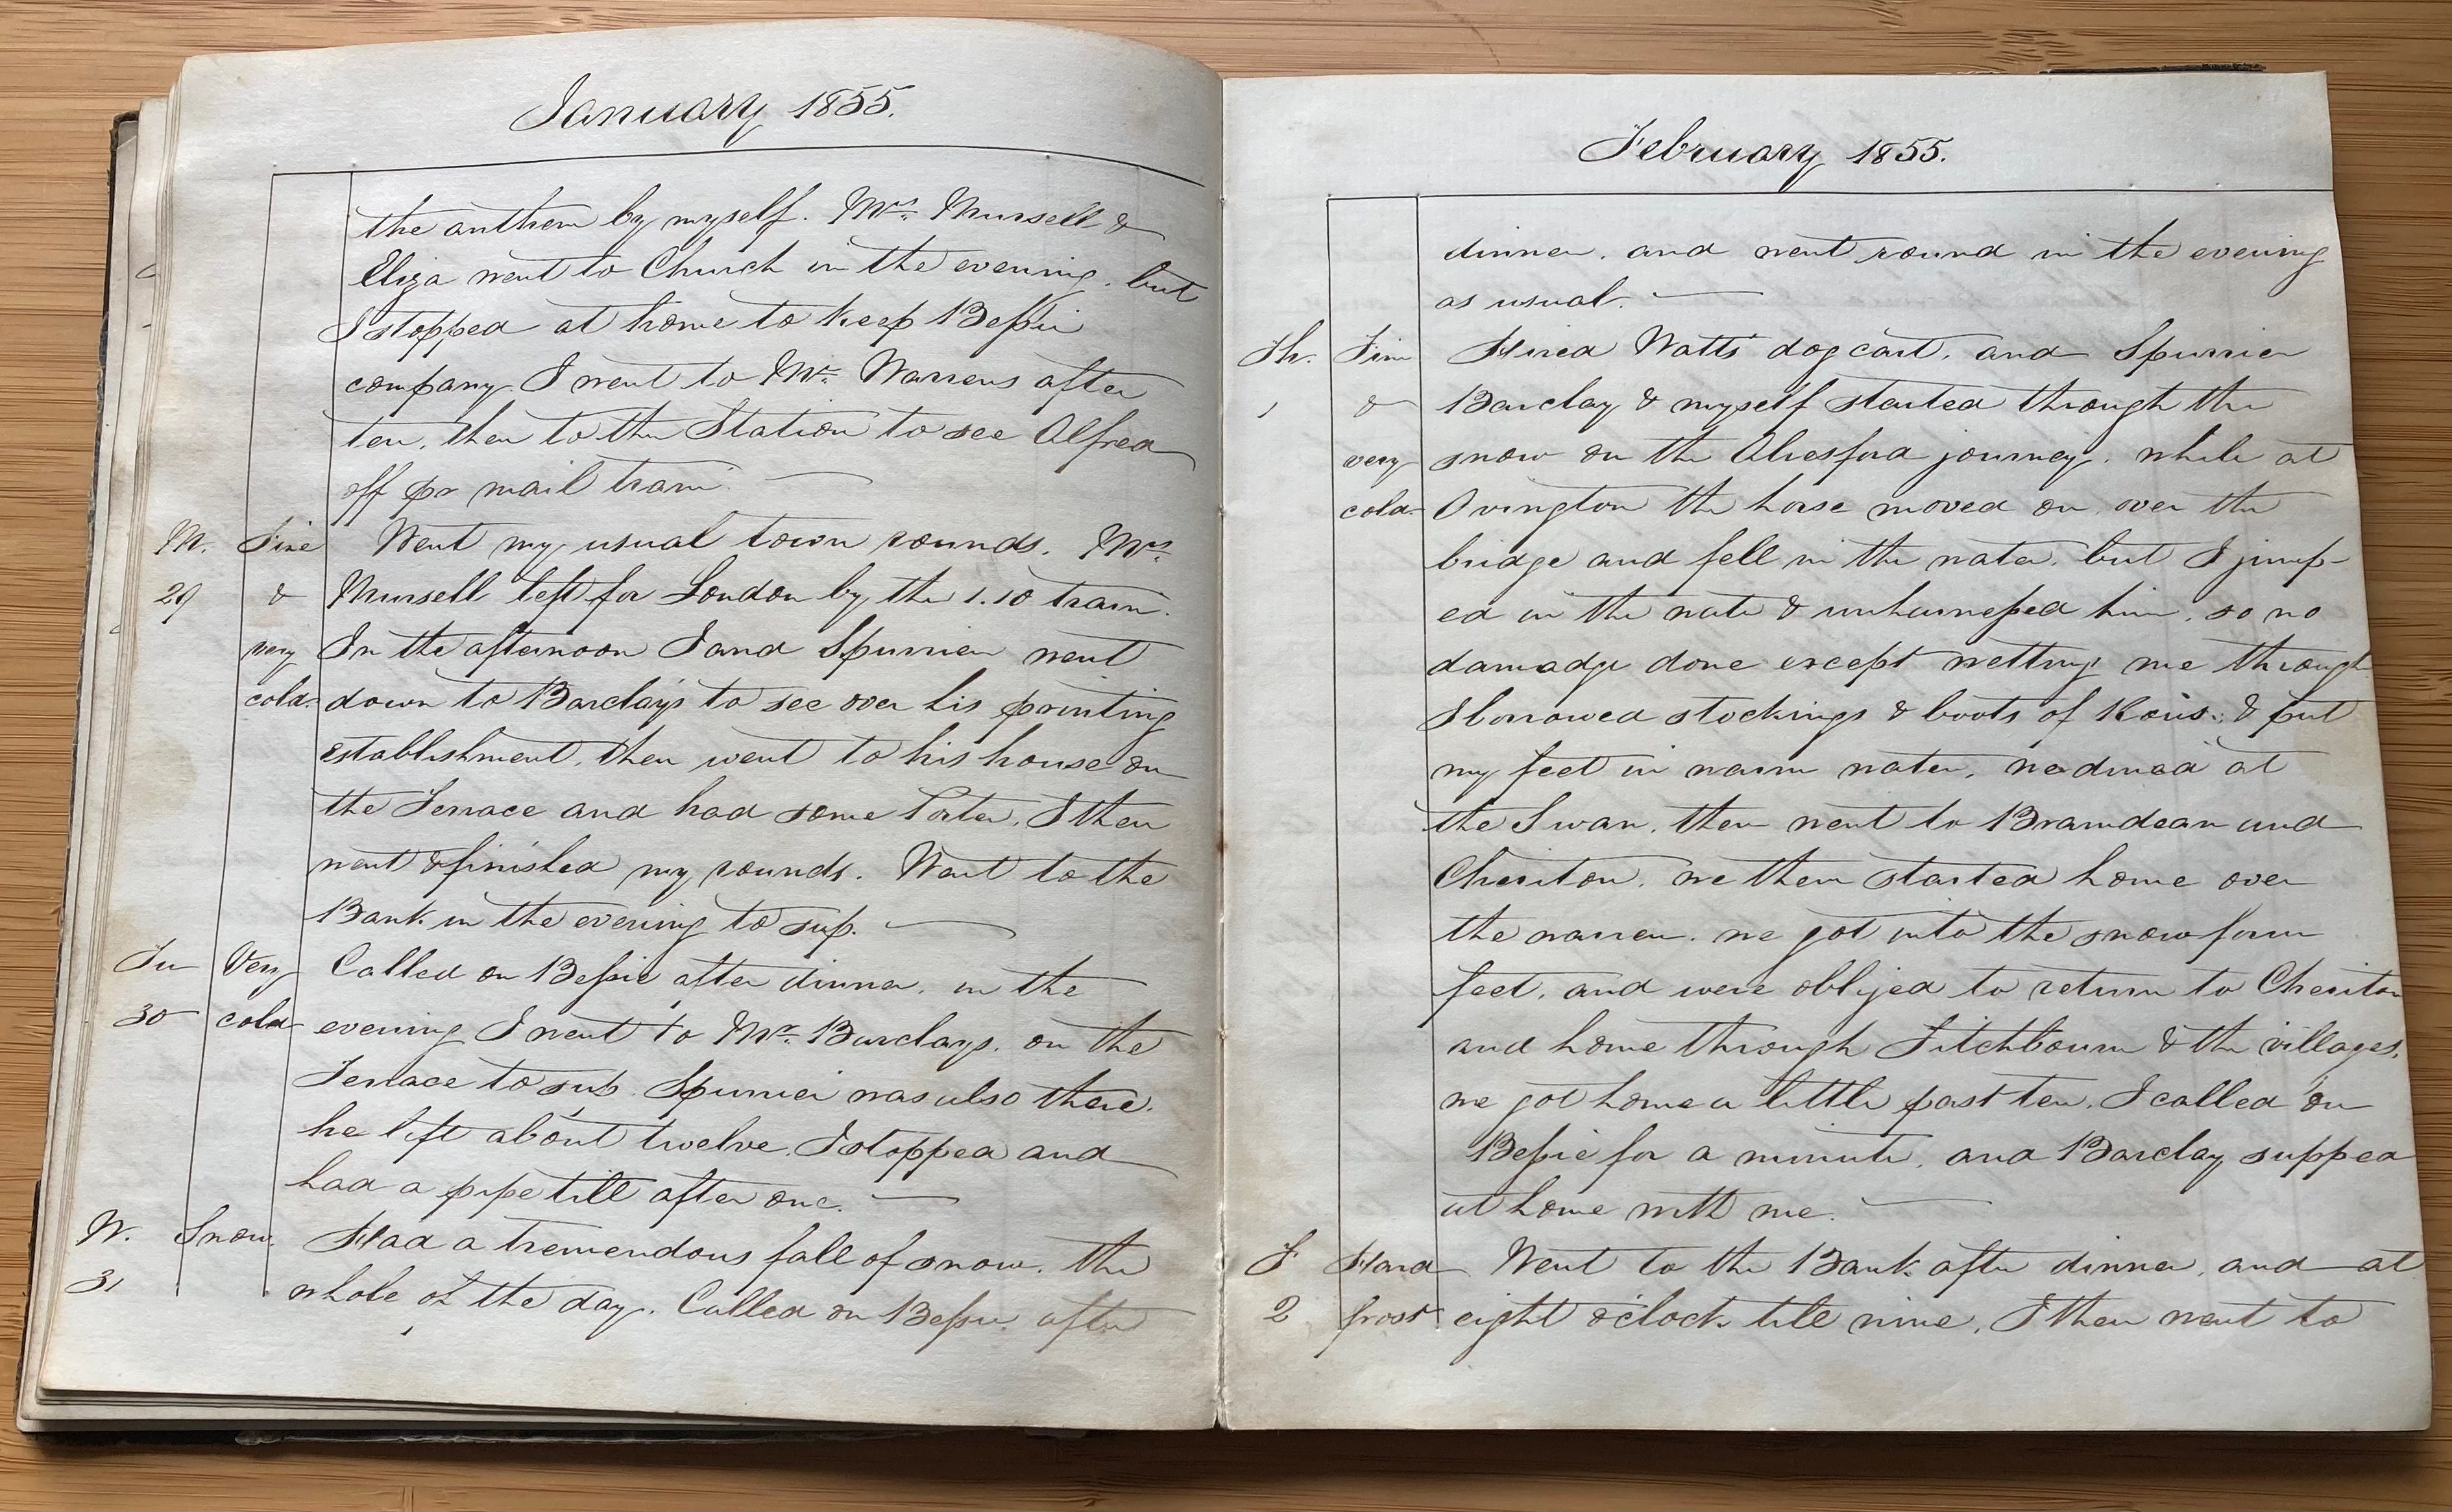 January 1855.
the anthem by myself. Mrs. Mursell &
Eliza went to Church in the evening, but
I stopped at home to keep Bessie
company. I went to Mr. Warrens after
ten, then to the Station to see Alfred
off pr mail train.
M. Fine Went my usual town rounds. Mrs.
29 & Mursell left for London by the 1.10 train.
very In the afternoon I and Spurrier went
cold down to Barclay's to see over his printing
establishment, then went to his house on
the Terrace and had some Porter, I then
went & finished my rounds. Went to the
Bank in the evening to sup.
Tu Very Called on Bessie after dinner, in the
30 cold evening I went to Mr. Barclays, on the
Terrace to sup. Spurrier was also there.
he left about twelve, I stopped and
had a pipe till after one.
W. Snow. Had a tremendous fall of snow, the
31 whole of the day. Called on Bessie after
February 1855.
dinner, and went round in the evening
as usual.
Th. Fine Hired Watts' dog cart, and Spurrier
1 & Barclay & myself started through the
very snow on the Alresford journey, while at
cold Ovington the horse moved on over the
bridge and fell in the water, but I jump-
ed in the water & unharnessed him, so no
damadge done except wetting me through
I borrowed stockings & boots of & put
my feet in warm water, we dined at
the Swan, then went to Bramdean and
Cheriton, we then started home over
the warren, we got into the snow four
feet, and were oblijed to return to Cheriton
and home through Titchbourn & the villages,
we got home a little past ten, I called on
Bessie for a minute, and Barclay supped
at home with me.
F Hard Went to the Bank after dinner, and at
2 frost eight o'clock till nine, I then went to